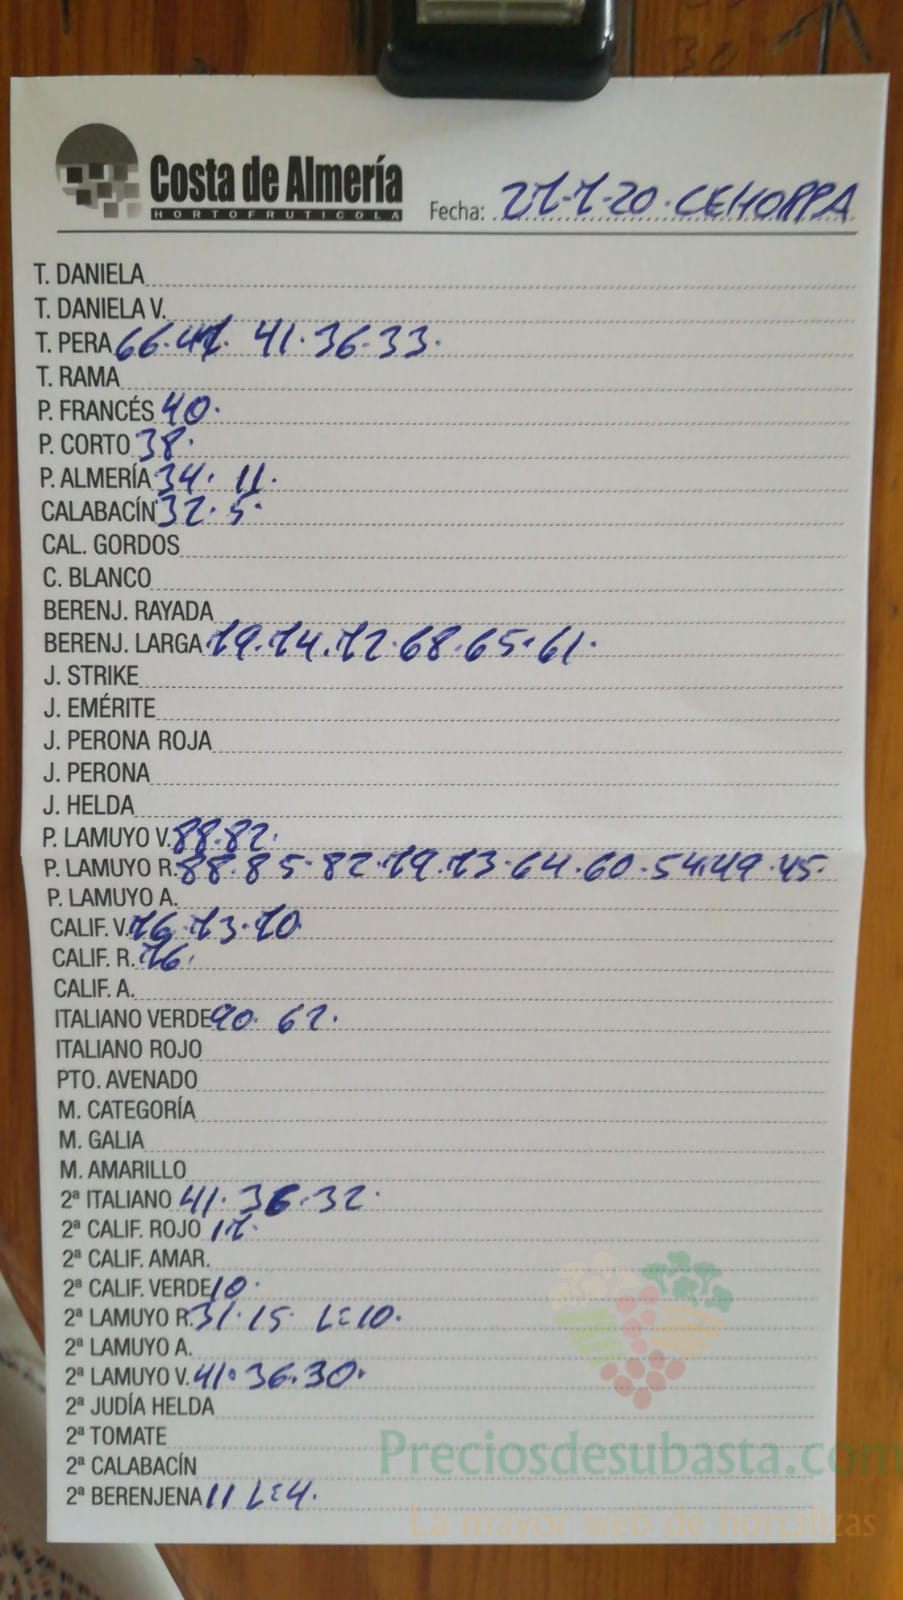 30
Costa de Almería
HORTOFRUTICOLA
Fecha: 27-7-20. CEHORPA
T. DANIELA
T. DANIELA V.
T. PERA 66. 47. 41. 36. 33.
T. RAMA
P. FRANCÉS 40.
P. CORTO 38.
P. ALMERÍA 34. 11.
CALABACÍN 32. 5.
CAL. GORDOS
C. BLANCO
BERENJ. RAYADA
BERENJ. LARGA 79. 74. 72. 68. 65. 61.
J. STRIKE
J. EMÉRITE
J. PERONA ROJA
J. PERONA
J. HELDA
P. LAMUYO V. 88. 82.
P. LAMUYO R. 88. 85. 82. 79. 73. 64. 60. 54. 49. 45.
P. LAMUYO A.
CALIF. V. 76. 73. 70
CALIF. R. 76.
CALIF. A.
ITALIANO VERDE 90. 62.
ITALIANO ROJO
PTO. AVENADO
M. CATEGORÍA
M. GALIA
M. AMARILLO
2ª ITALIANO 41. 36. 32.
2ª CALIF. ROJO 17.
2ª CALIF. AMAR.
2ª CALIF. VERDE 10.
2ª LAMUYO R. 31. 15 L=10.
2ª LAMUYO A.
2ª LAMUYO V. 41. 36. 30.
2ª JUDÍA HELDA
2ª TOMATE
2ª CALABACÍN
2ª BERENJENA 11 L=4.
Preciosdesubasta.com
La mayor web de hortalizas